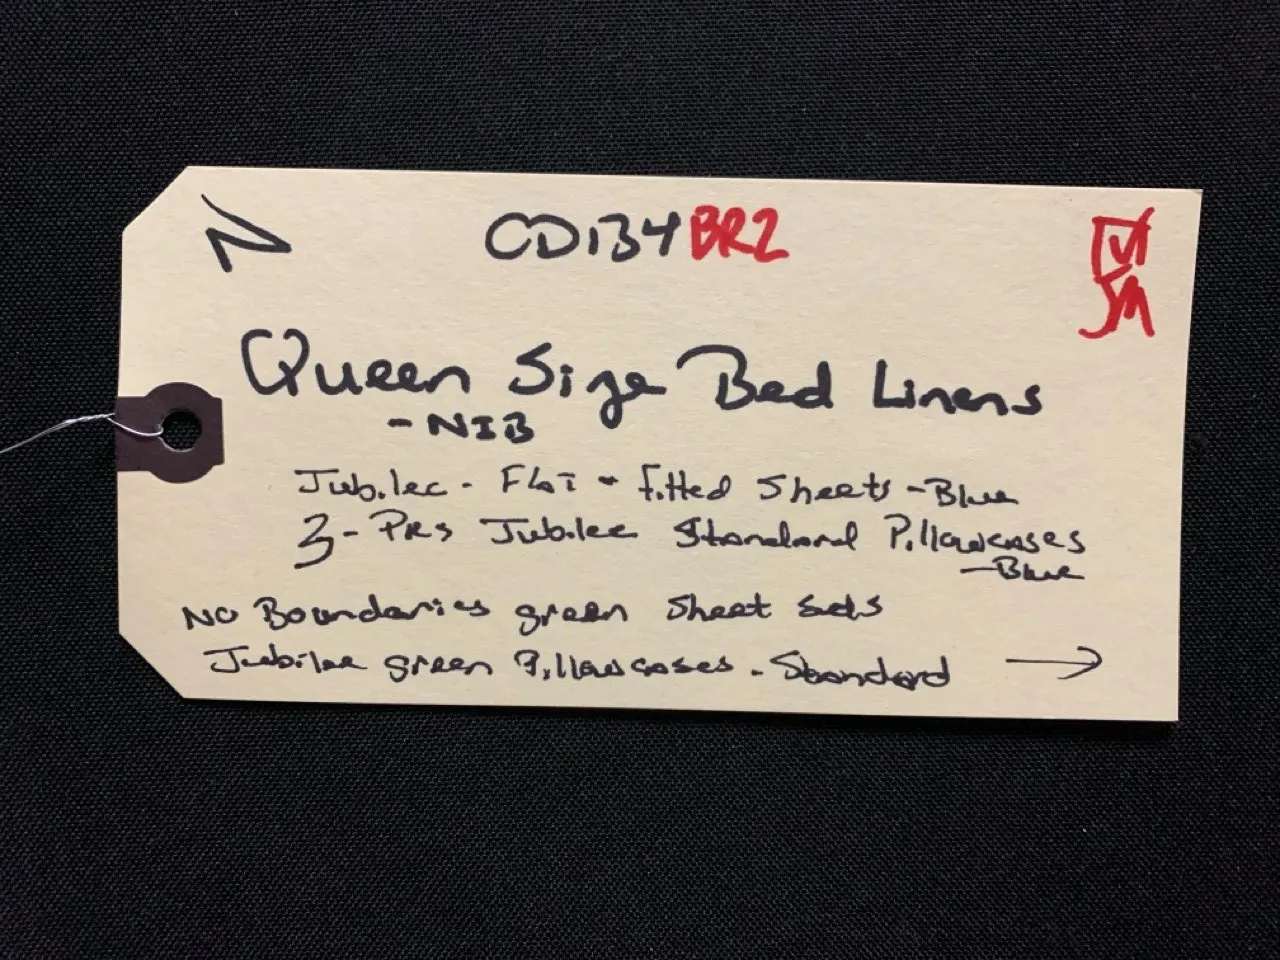 N
CD134 BR2
JM
Queen Size Bed Linens
- NIB
Jubilee - Flat + fitted Sheets - Blue
3 - PRS Jubilee Standard Pillowcases
- Blue
No Boundaries green Sheet Sets
Jubilee green Pillowcases - Standard →